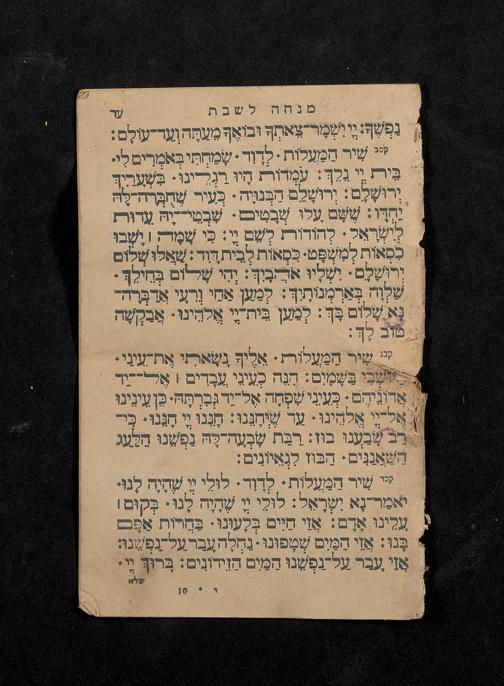 מנחה לשבת עד
נַפְשֶׁךָ: יְיָ יִשְׁמָר־צֵאתְךָ וּבוֹאֶךָ מֵעַתָּה וְעַד־עוֹלָם:
קכב שִׁיר הַמַּעֲלוֹת· לְדָוִד· שָׂמַחְתִּי בְּאֹמְרִים לִי·
בֵּית יְיָ נֵלֵךְ: עֹמְדוֹת הָיוּ רַגְלֵינוּ· בִּשְׁעָרַיִךְ
יְרוּשָׁלָםִ: יְרוּשָׁלַםִ הַבְּנוּיָה· כְּעִיר שֶׁחֻבְּרָה־לָּהּ
יַחְדָּו: שֶׁשָּׁם עָלוּ שְׁבָטִים· שִׁבְטֵי־יָהּ עֵדוּת
לְיִשְׂרָאֵל· לְהוֹדוֹת לְשֵׁם יְיָ: כִּי שָׁמָּה ׀ יָשְׁבוּ
כִסְאוֹת לְמִשְׁפָּט· כִּסְאוֹת לְבֵית דָּוִד: שַׁאֲלוּ שְׁלוֹם
יְרוּשָׁלָםִ· יִשְׁלָיוּ אֹהֲבָיִךְ: יְהִי שָׁלוֹם בְּחֵילֵךְ·
שַׁלְוָה בְּאַרְמְנוֹתָיִךְ: לְמַעַן אַחַי וְרֵעָי אֲדַבְּרָה־
נָּא שָׁלוֹם בָּךְ: לְמַעַן בֵּית־יְיָ אֱלֹהֵינוּ· אֲבַקְשָׁה
טוֹב לָךְ:
קכג שִׁיר הַמַּעֲלוֹת· אֵלֶיךָ נָשָׂאתִי אֶת־עֵינַי·
הַיּוֹשְׁבִי בַּשָּׁמָיִם: הִנֵּה כְעֵינֵי עֲבָדִים ׀ אֶל־יַד
אֲדוֹנֵיהֶם· כְּעֵינֵי שִׁפְחָה אֶל־יַד גְּבִרְתָּהּ· כֵּן עֵינֵינוּ
אֶל־יְיָ אֱלֹהֵינוּ· עַד שֶׁיְּחָנֵּנוּ: חָנֵּנוּ יְיָ חָנֵּנוּ· כִּי־
רַב שָׂבַעְנוּ בוּז: רַבַּת שָׂבְעָה־לָּהּ נַפְשֵׁנוּ הַלַּעַג
הַשַּׁאֲנַנִּים· הַבּוּז לִגְאֵיוֹנִים:
קכד שִׁיר הַמַּעֲלוֹת· לְדָוִד· לוּלֵי יְיָ שֶׁהָיָה לָנוּ·
יֹאמַר־נָא יִשְׂרָאֵל: לוּלֵי יְיָ שֶׁהָיָה לָנוּ· בְּקוּם ׀
עָלֵינוּ אָדָם: אֲזַי חַיִּים בְּלָעוּנוּ· בַּחֲרוֹת אַפָּם
בָּנוּ: אֲזַי הַמַּיִם שְׁטָפוּנוּ· נַחְלָה עָבַר עַל־נַפְשֵׁנוּ:
אֲזַי עָבַר עַל־נַפְשֵׁנוּ הַמַּיִם הַזֵּידוֹנִים: בָּרוּךְ יְיָ·
שלא
י * 10